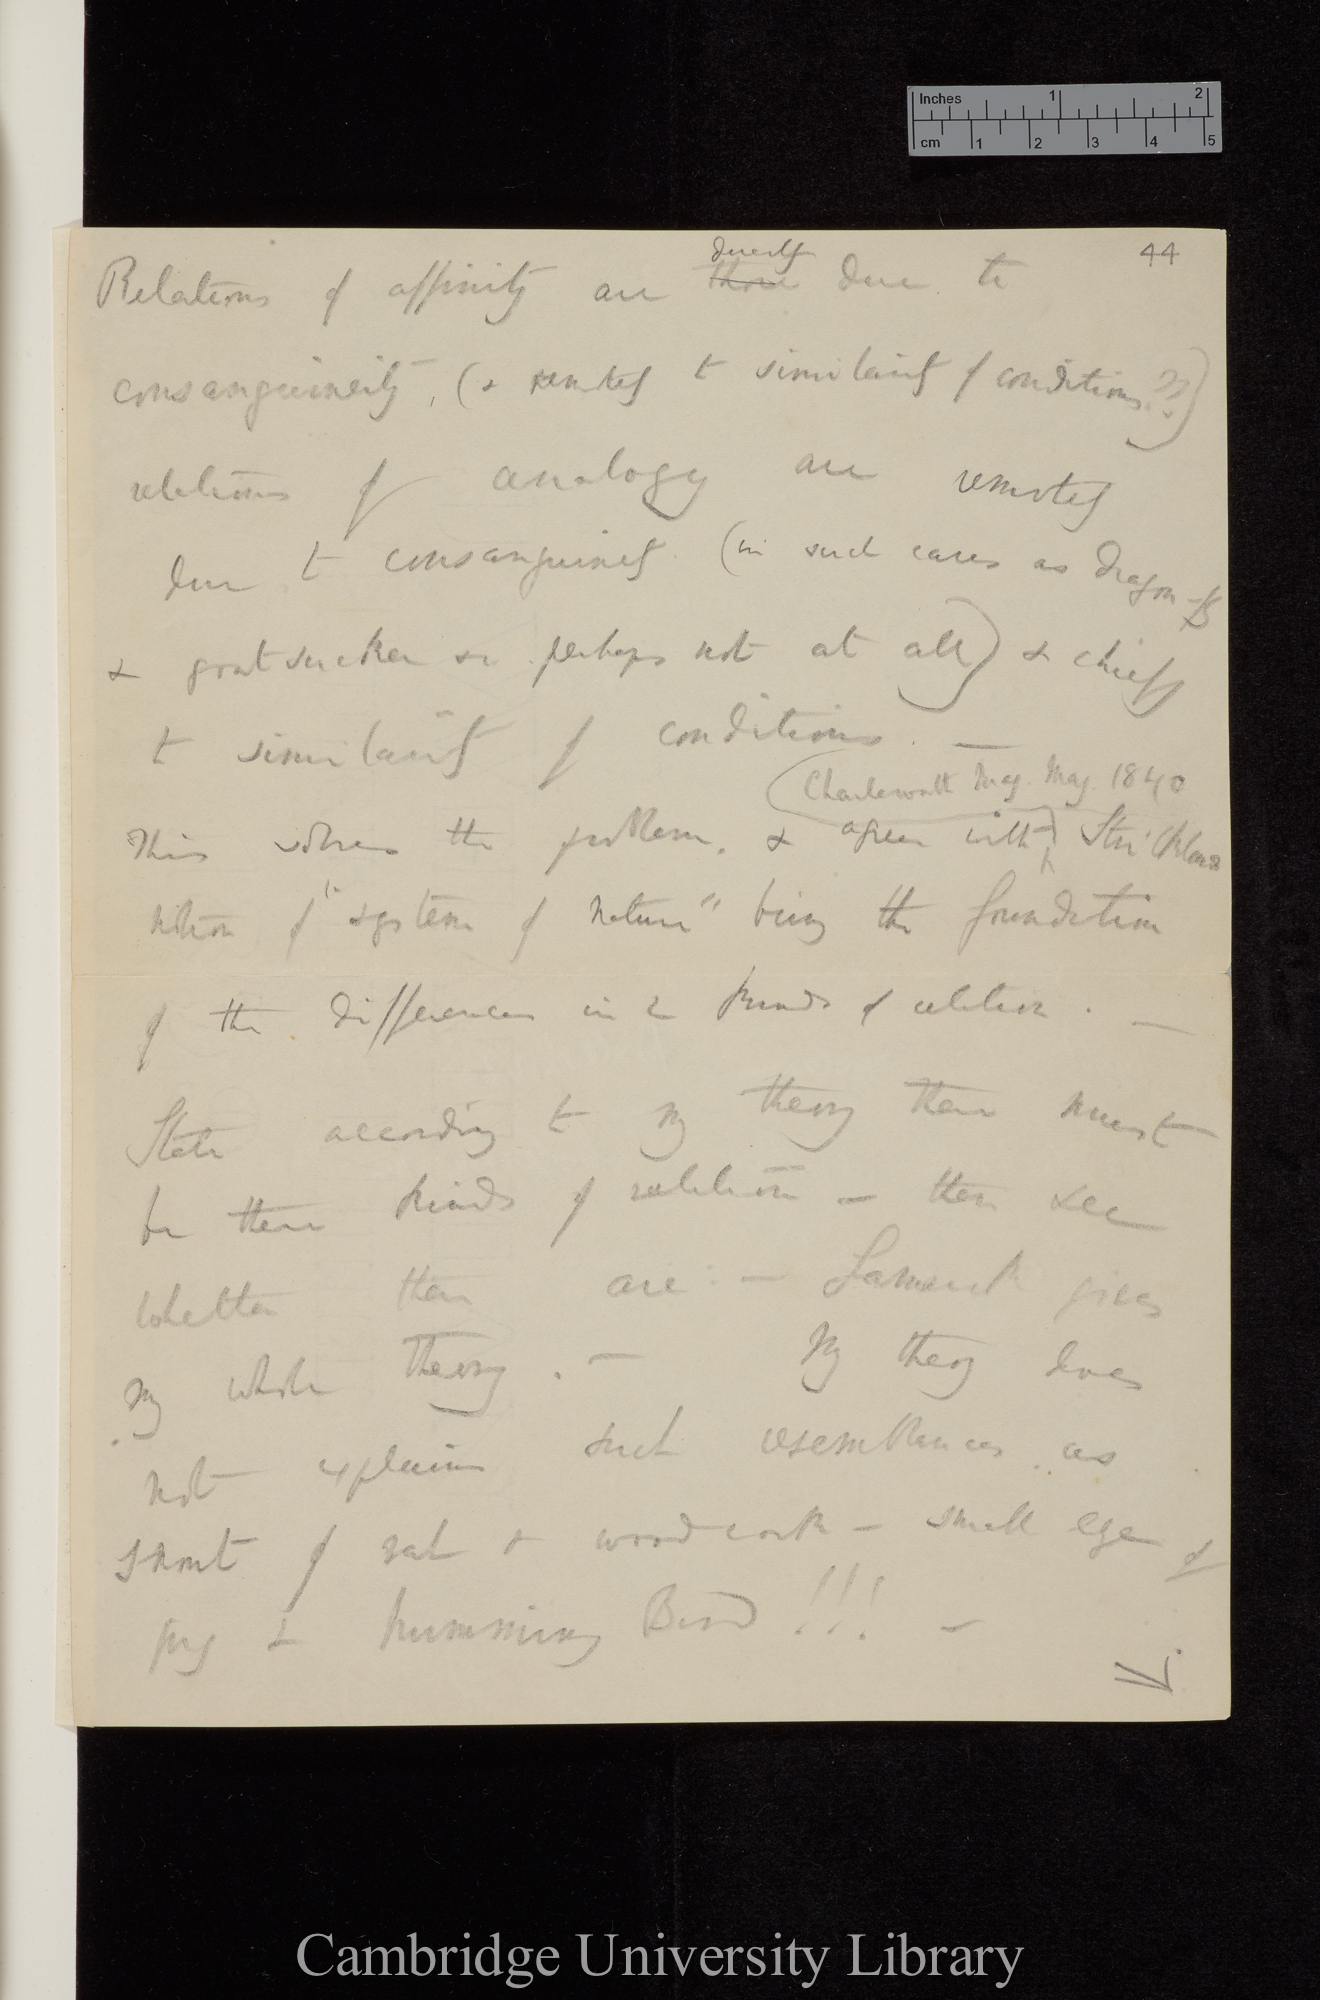 Inches 1 2
cm 1 2 3 4 5
44
directly
Relations of affinity are those due to
consanguineity, (& remotely to similarity of conditions??)
relations of analogy are remotely
due to consanguinity (in such cases as Dragon-fly
& goatsucker &c perhaps not at all) & chiefly
to similarity of conditions. —
(Charlesworth Mag. May. 1840
This solves the problem, & agrees with) Strickland
notion of "system of nature" being the foundation
of the differences in 2 kinds of relation. —
State according to my theory there must
be these kinds of relation — then see
whether there are: — Lamarck gives
my whole theory. — My theory does
not explain such resemblances as
snout of rat & woodcock — small eye of
pig & humming Bird!!! —
V.
Cambridge University Library